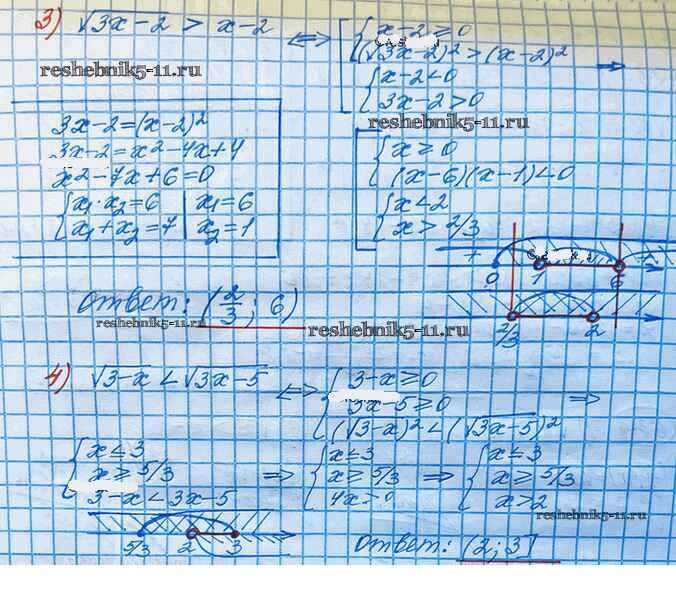 3) √3x-2 > x-2 ⟺ [ { x-2 ≥ 0
(√3x-2)² > (x-2)² ⟹
{ x-2 < 0
3x-2 > 0
reshebnik5-11.ru
reshebnik5-11.ru
3x-2=(x-2)²
3x-2=x²-4x+4
x²-7x+6=0
{ x₁·x₂=6 | x₁=6
x₁+x₂=7 | x₂=1
[ { x ≥ 0
(x-6)(x-1)<0
{ x<2
x> 2/3
+ 0 1 6 +
2/3 2
Ответ: (2/3; 6)
reshebnik5-11.ru
reshebnik5-11.ru
4) √3-x < √3x-5 ⟺ { 3-x ≥ 0
3x-5 ≥ 0 ⟹
(√3-x)² < (√3x-5)²
{ x ≤ 3
x ≥ 5/3
3-x < 3x-5
⟹ { x ≤ 3
x ≥ 5/3
⟹ { x ≤ 3
x ≥ 5/3
x>2
reshebnik5-11.ru
5/3 2 3
Ответ: (2; 3]